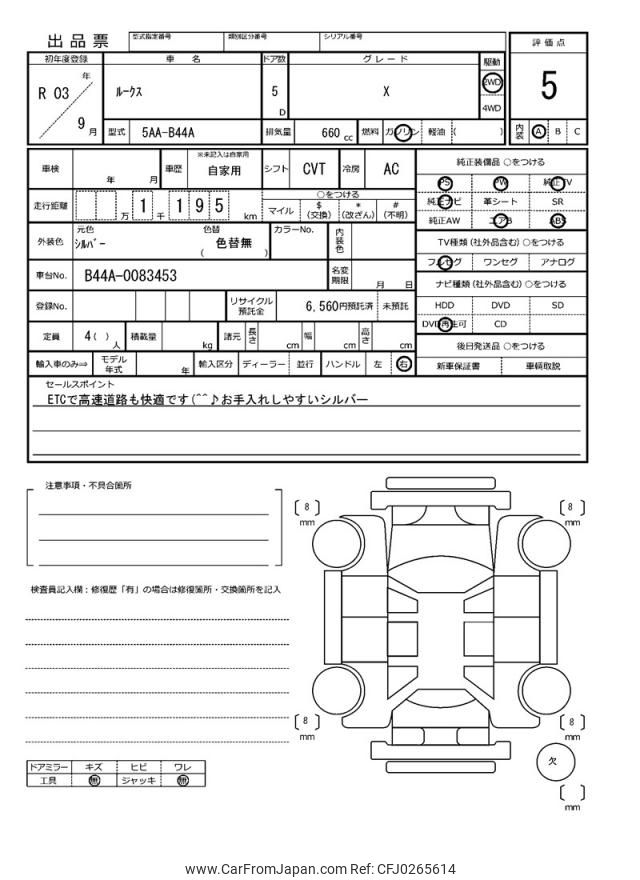 出品票 型式指定番号 類別区分番号 シリアル番号
評価点
5
初年度登録 車名 ドア数 グレード 駆動
R 03 年 9 月
ルークス 5 D X 2WD 4WD
型式 5AA-B44A 排気量 660 cc 燃料 ガソリン 軽油 ( ) 内装 A B C
車検 年 月 車歴 ※未記入は自家用 自家用 シフト CVT 冷房 AC
走行距離 万 1 千 1 9 5 km
○をつける
マイル $ (交換) * (改ざん) # (不明)
外装色 元色 シルバー 色替 ( 色替無 ) カラーNo. 内装色
車台No. B44A-0083453 名変期限 月 日
登録No. リサイクル預託金 6,560円預託済 未預託
定員 4 ( ) 人 積載量 kg 諸元 長さ cm 幅 cm 高さ cm
輸入車のみ⇒ モデル年式 年 輸入区分 ディーラー 並行 ハンドル 左 右
純正装備品 ○をつける
PS PW 純正TV
純正ナビ 革シート SR
純正AW エアB ABS
TV種類 (社外品含む) ○をつける
フルセグ ワンセグ アナログ
ナビ種類 (社外品含む) ○をつける
HDD DVD SD
DVD再生可 CD
後日発送品 ○をつける
新車保証書 車輌取説
セールスポイント
ETCで高速道路も快適です(^^♪お手入れしやすいシルバー
注意事項・不具合箇所
検査員記入欄：修復歴「有」の場合は修復箇所・交換箇所を記入
[ 8 ] mm
[ 8 ] mm
[ 8 ] mm
[ 8 ] mm
欠
[ ] mm
ドアミラー キズ ヒビ ワレ
工具 無 ジャッキ 無
www.CarFromJapan.com Ref: CFJ0265614